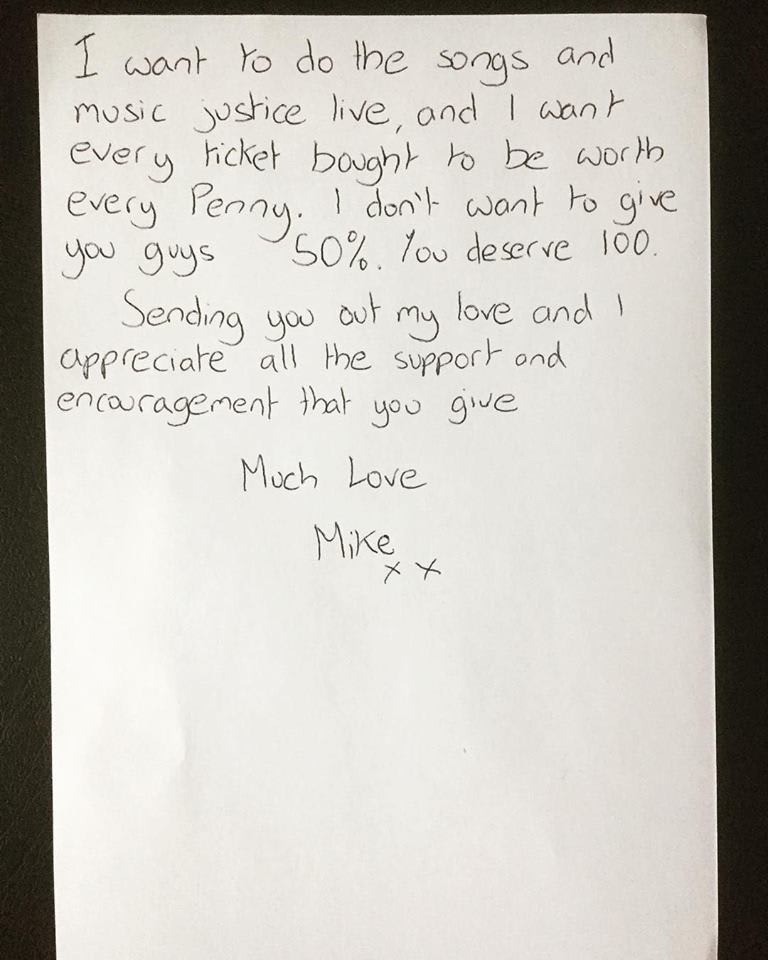 I want to do the songs and
music justice live, and I want
every ticket bought to be worth
every Penny. I don't want to give
you guys 50%. You deserve 100.
Sending you out my love and I
appreciate all the support and
encouragement that you give
Much Love
Mike
x x